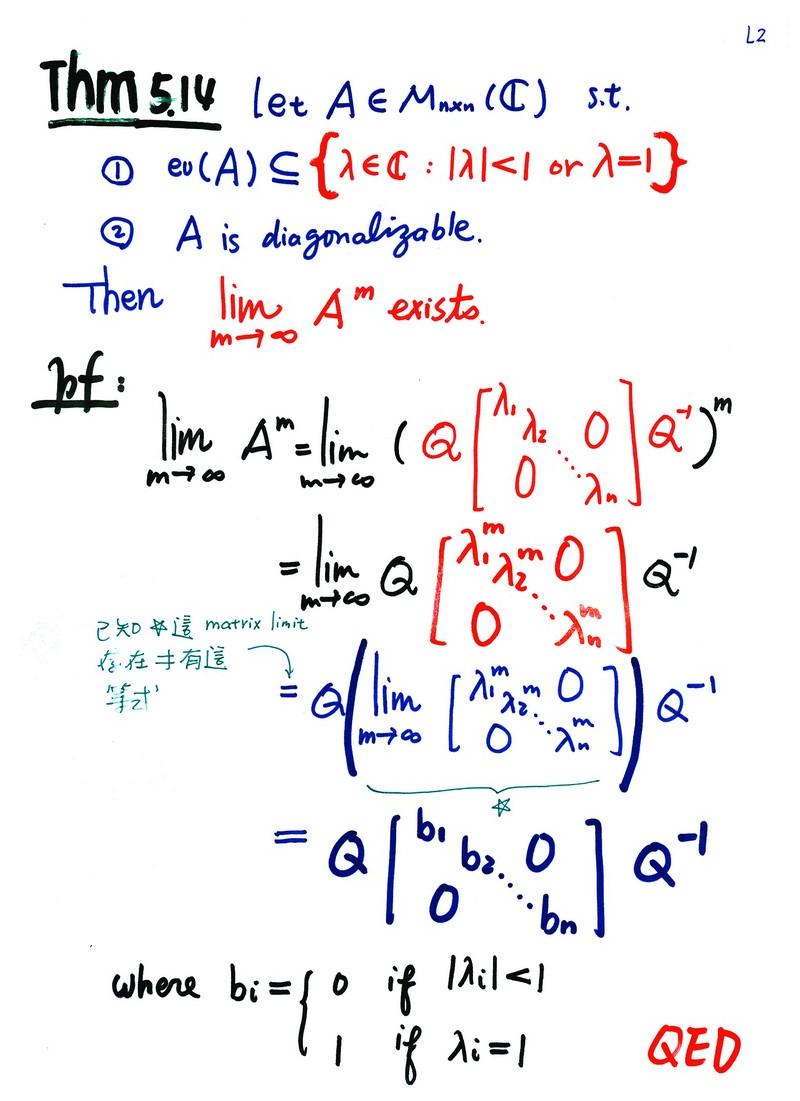 L2
Thm 5.14 let A ∈ Mn×n(ℂ) s.t.
① ev(A) ⊆ {λ∈ℂ : |λ|<1 or λ=1}
② A is diagonalizable.
Then lim m→∞ A^m exists.
pf:
lim m→∞ A^m = lim m→∞ ( Q [λ1 λ2 0 0 ⋱ λn] Q^-1 )^m
= lim m→∞ Q [λ1^m λ2^m 0 0 ⋱ λn^m] Q^-1
已知☆這 matrix limit
存在才有這
等式
= Q ( lim m→∞ [λ1^m λ2^m 0 0 ⋱ λn^m] ) Q^-1
☆
= Q [b1 b2 0 0 ⋱ bn] Q^-1
where bi = { 0 if |λi|<1
1 if λi=1
QED